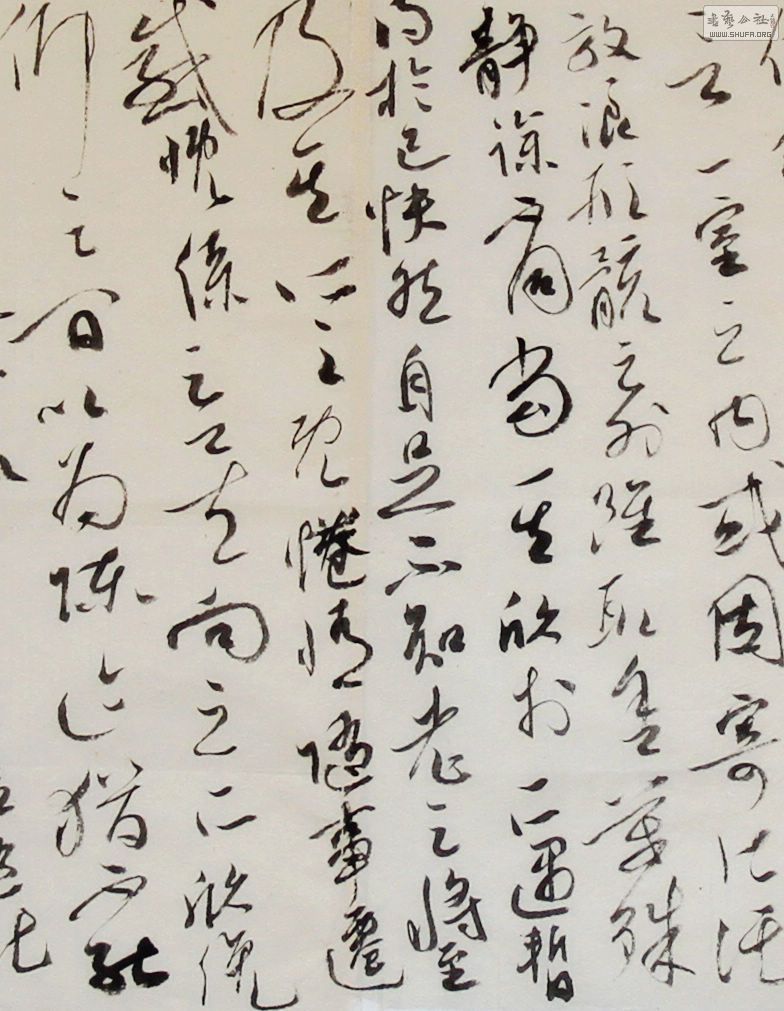 書藝公社
WWW.SHUFA.ORG
言一室之内或因寄所託
放浪形骸之外雖取舍萬殊
静躁不同當其欣於所遇暫
得於己快然自足不知老之將至
及其所之既惓情隨事遷
感慨係之矣向之所欣俛
仰之間以為陳迹猶不能